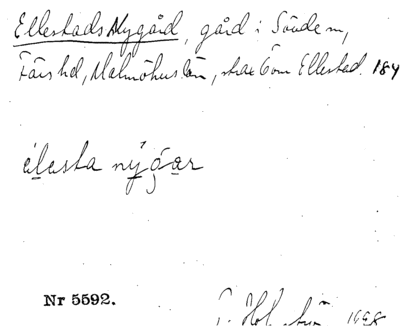 Ellestads Nygård, gård i Sövde sn,
Färs hd, Malmöhus län, strax Ö om Ellestad. 184
elesta nygar
Nr 5592.